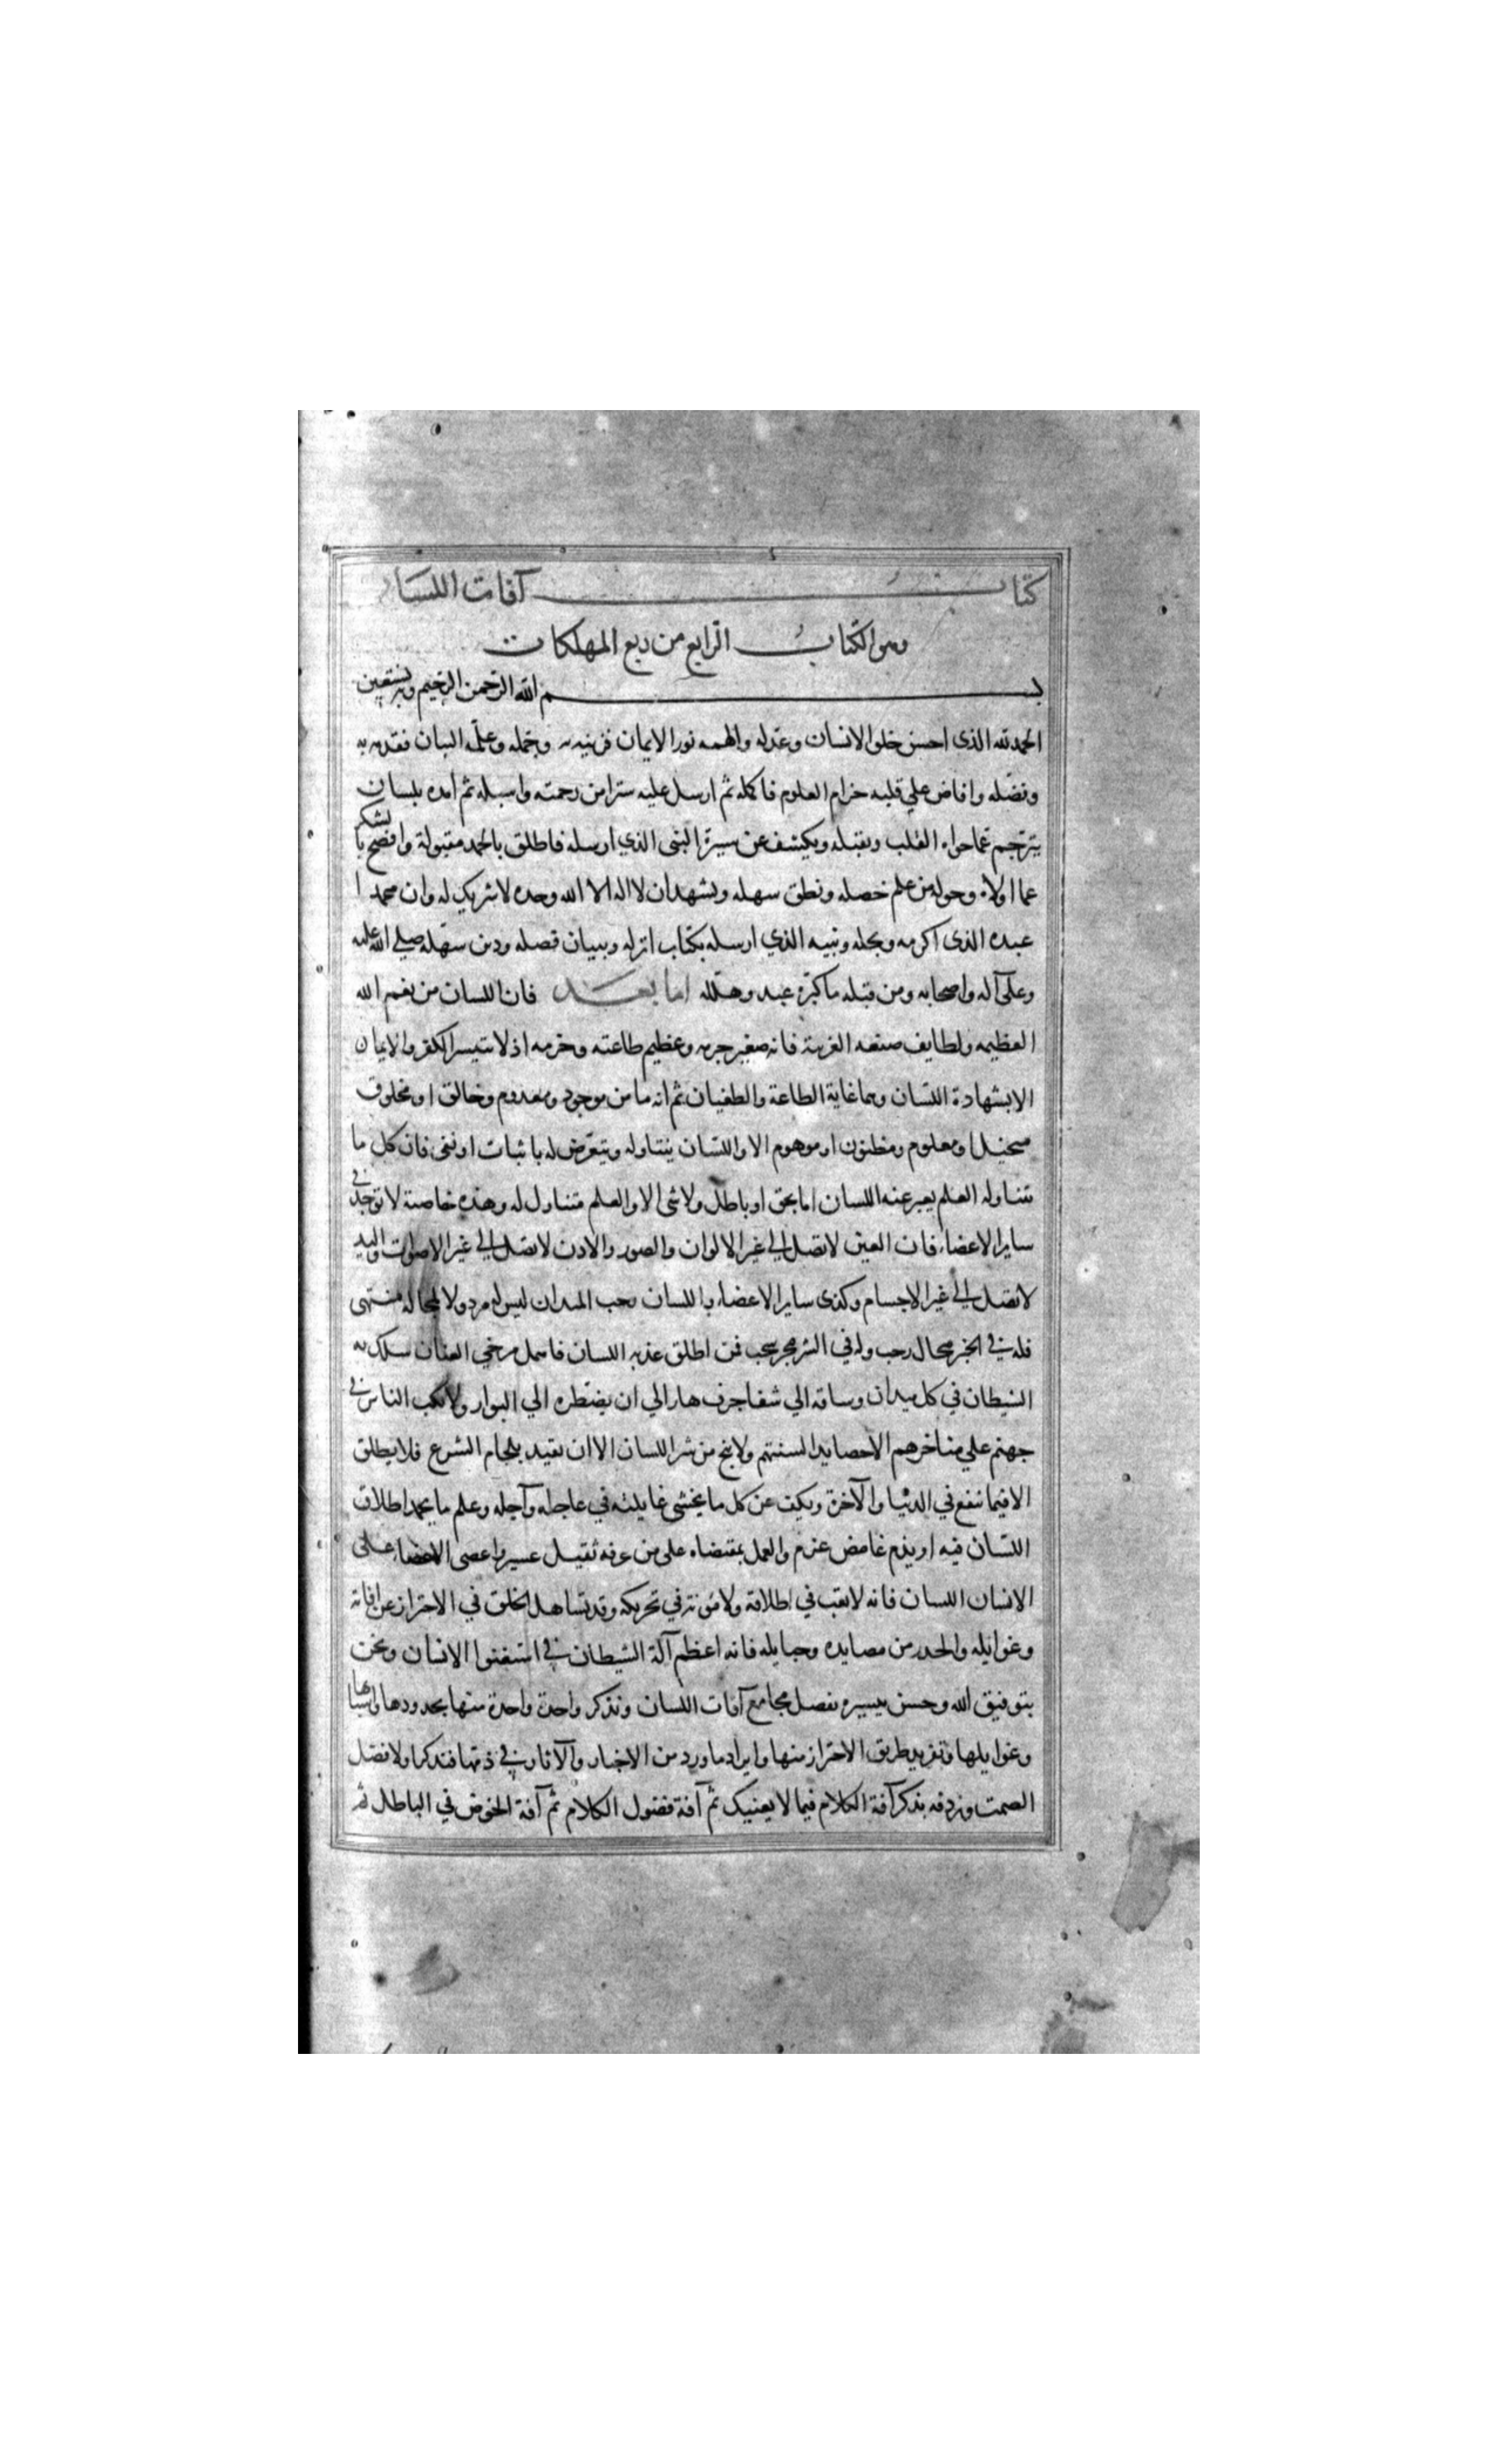 كتاب آفات اللسان
وهو الكتاب الرابع من ربع المهلكات
بسم الله الرحمن الرحيم وبه نستعين
الحمد لله الذى احسن خلق الانسان وعدله والهمه نور الايمان فزينه به وجمله وعلمه البيان فقدمه به
وفضله وافاض علي قلبه خزاين العلوم فاكمله ثم ارسل عليه سترا من رحمته واسبله ثم امده بلسان
يترجم عما حواه القلب ويقبله ويكشف عن سيرة النبى الذي ارسله فاطلق بالحمد مقبولة وافصح بالشكر
عما اولاه وخوله من علم حصله ونطق سهله ونشهد ان لا اله الا الله وحده لا شريك له وان محمدا
عبده الذى اكرمه وبجله ونبيه الذي ارسله بكتاب انزله وبيان فصله ودين سهله صلي الله عليه
وعلى آله واصحابه ومن قبله ما كبر عبد وهلله اما بعد فان اللسان من نعم الله
العظيمه ولطايف صنعه الغريبة فانه صغير جرمه وعظيم طاعته وجرمه اذ لا يتيسر الكفر والايمان
الا بشهادة اللسان وهما غاية الطاعة والطغيان ثم انه ما من موجود ومعدوم وخالق او مخلوق
متخيل او معلوم ومظنون او موهوم الا واللسان يتناوله ويتعرض له باثبات او نفى فان كل ما
تناوله العلم يعبر عنه اللسان اما بحق او باطل ولا شى الا والعلم متناول له وهذه خاصة لا توجد في
ساير الاعضاء فان العين لا تصل الي غير الالوان والصور والاذن لا تصل الي غير الاصوات واليد
لا تصل الي غير الاجسام وكذى ساير الاعضاء واللسان رحب الميدان ليس له مرد ولا لمجاله منتهى
فله في الخير مجال رحب وله في الشر مجر سحب فمن اطلق عذبه اللسان فاهمل مرخي العنان سلك به
الشيطان في كل ميدان وساقه الي شفا جرف هار الي ان يضطره الي البوار ولا يكب الناس في
جهنم علي مناخرهم الا حصايد السنتهم ولا ينج من شر اللسان الا ان يقيد بلجام الشرع فلا يطلق
الا فيما ينفع في الدنيا والآخرة ويكف عن كل ما يخشى غايلته في عاجله وآجله وعلم ما يحمد اطلاق
اللسان فيه او يذم غامض عزيز والعمل بمقتضاه على من عرفه ثقيل عسير واعصى الاعضاء على
الانسان اللسان فانه لا تعب في اطلاقه ولا مؤنة في تحريكه وقد تساهل الخلق في الاحتراز عن افاته
وغوايله والحذر من مصايده وحبايله فانه اعظم آلة الشيطان في استغوا الانسان ونحن
بتوفيق الله وحسن تيسيره نفصل مجامع آفات اللسان ونذكر واحدة واحدة منها بحدودها واسبابها
وغوايلها ونعرف طريق الاحتراز منها وايراد ما ورد من الاخبار والآثار في ذمها فنذكر اولا فضل
الصمت ونردفه بذكر آفة الكلام فيما لا يعنيك ثم آفة فضول الكلام ثم آفة الخوض في الباطل ثم